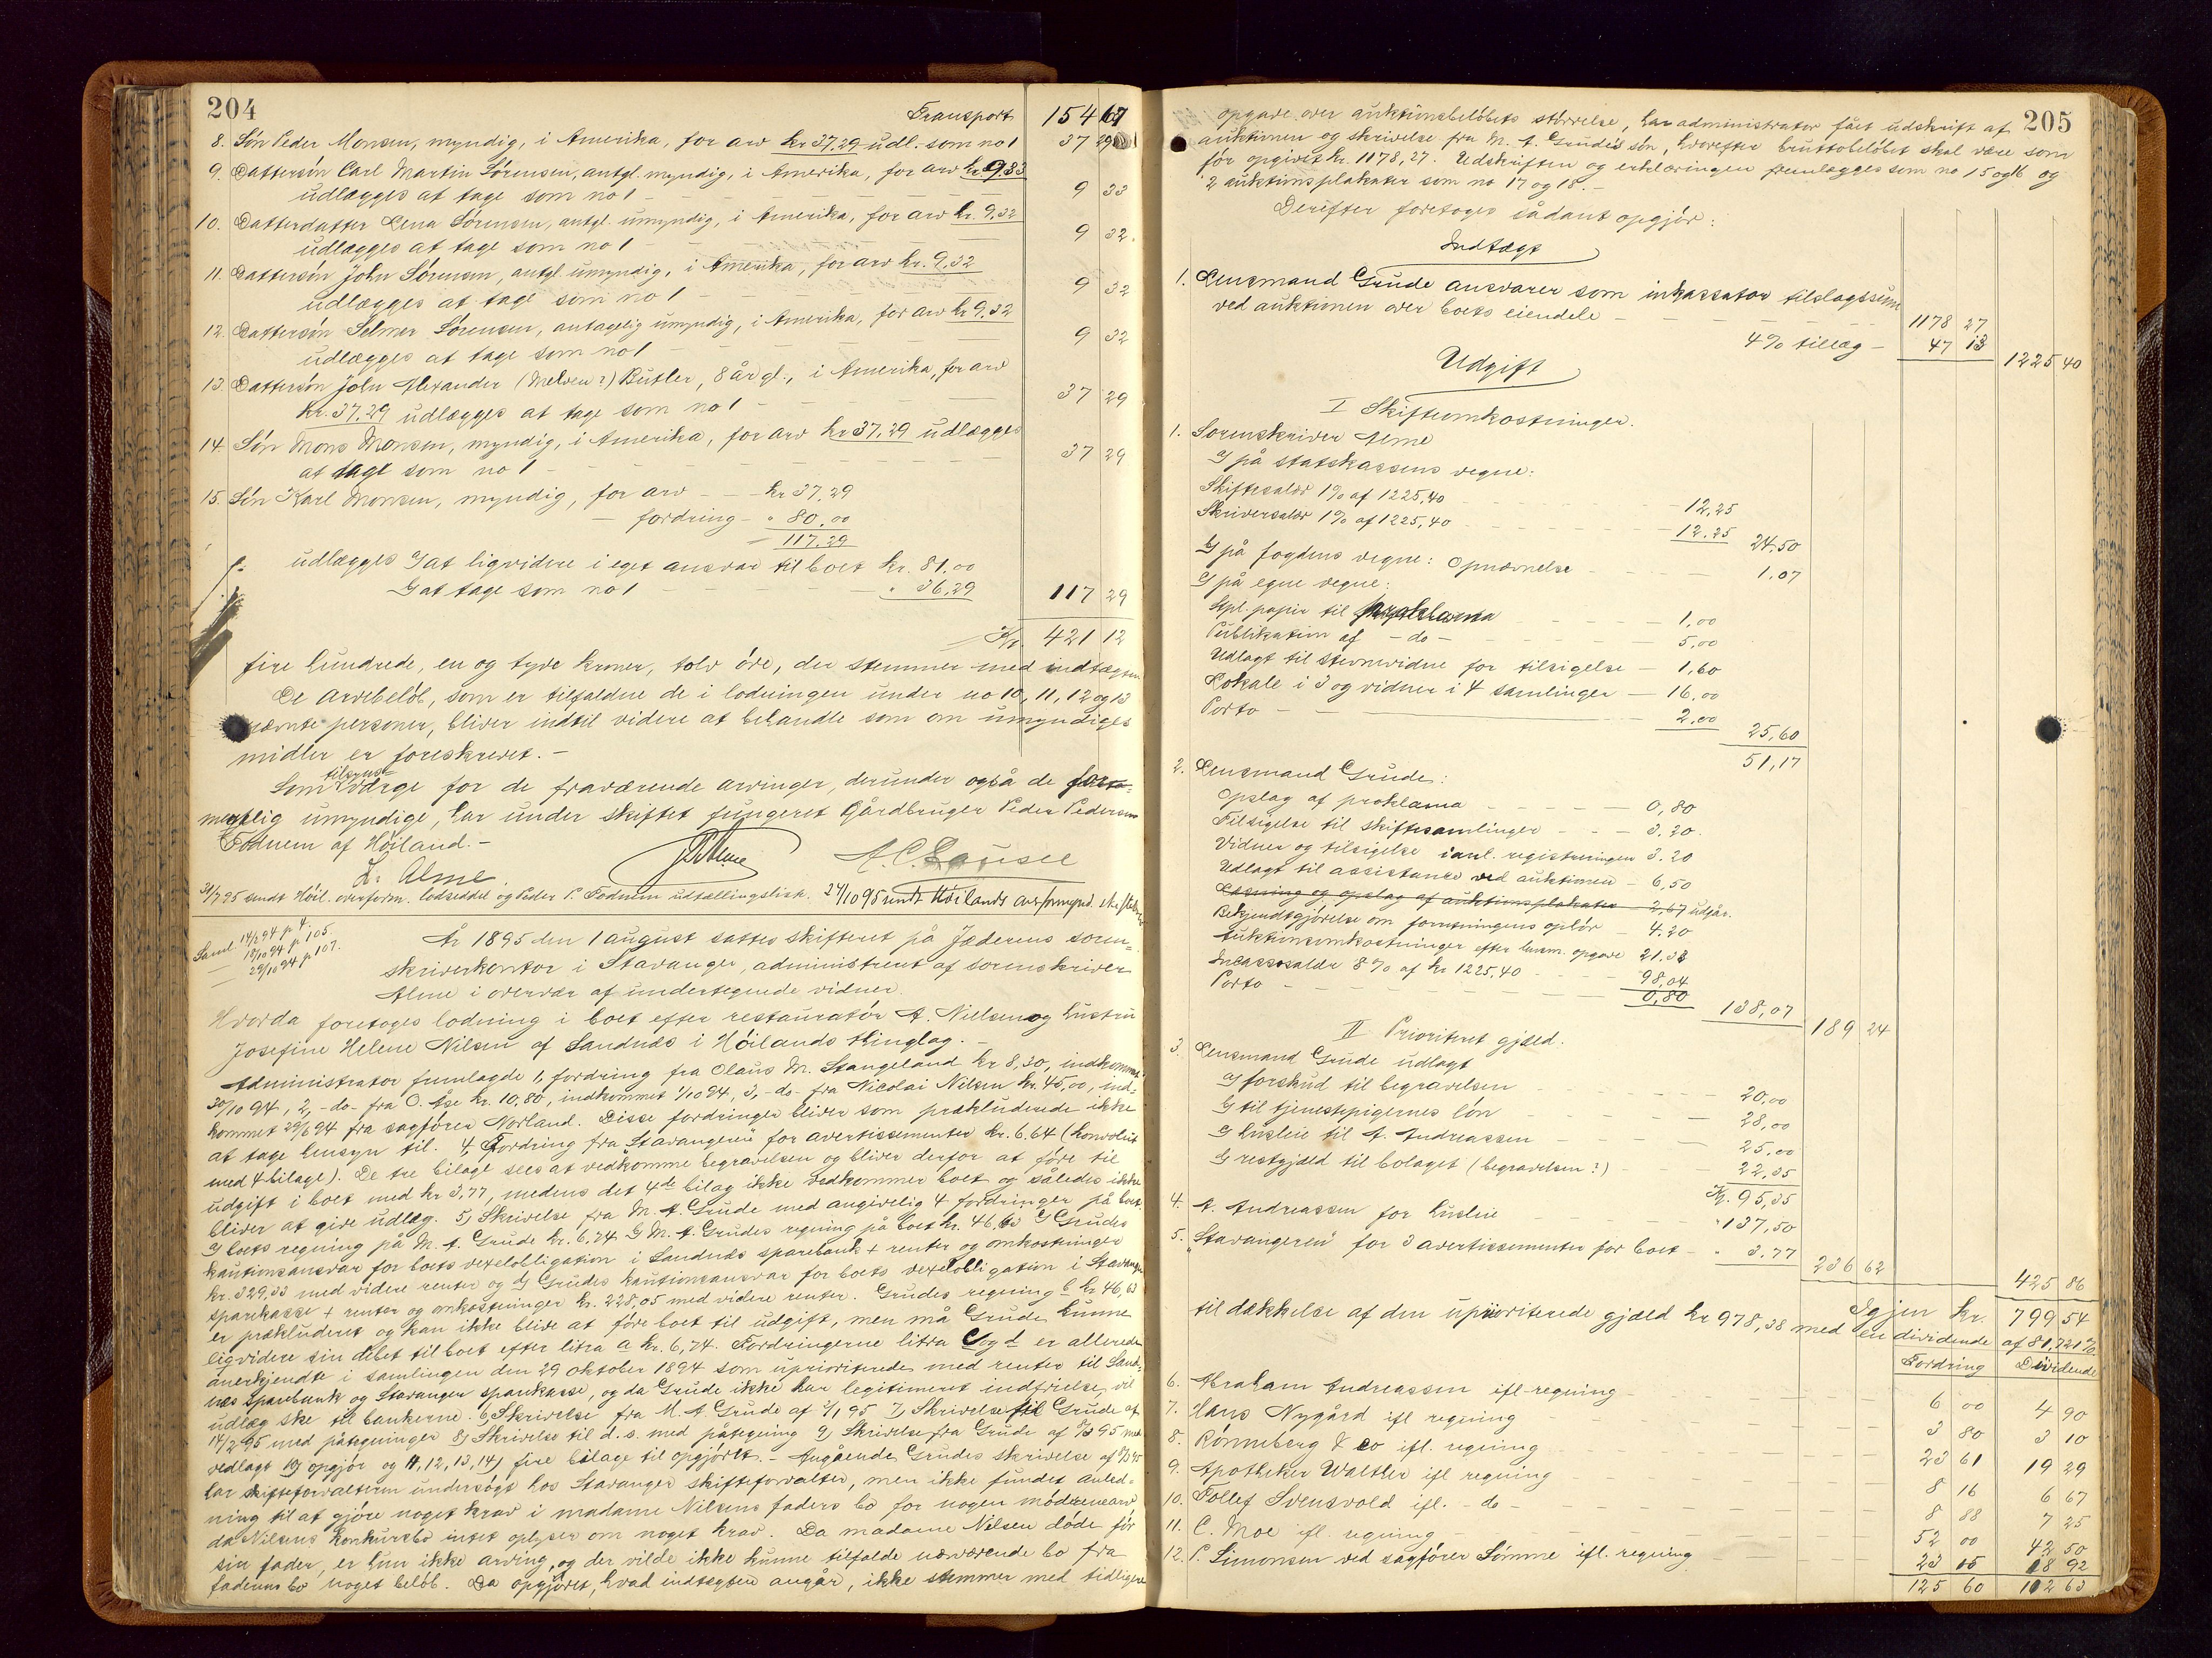 204
Transport 154 67
8. Søn Peder Monsen, myndig, i Amerika, for arv kr 37,29 udl. som no 1 37 29
9. Dattersøn Carl Martin Sørensen, antgl. myndig, i Amerika, for arv kr 9,33
udlægges at tage som no 1 9 33
10. Datterdatter Lena Sørensen, antgl. umyndig, i Amerika, for arv kr. 9,32
udlægges at tage som no 1 9 32.
11. Dattersøn John Sørensen, antgl. umyndig, i Amerika, for arv kr. 9,32
udlægges at tage som no 1 9 32
12. Dattersøn Selmer Sørensen, antagelig umyndig, i Amerika, for arv kr 9,32
udlægges at tage som no 1 9 32
13. Dattersøn John Alexander (Melven?) Butler, 8 år gl., i Amerika, for arv
kr. 37,29 udlægges at tage som no 1 37 29
14. Søn Mons Monsen, myndig, i Amerika, for arv kr 37,29 udlægges
at tage som no 1 37 29
15. Søn Karl Monsen, myndig, for arv kr 37,29
fordring " 80,00
117,29
udlægges at liqvidere i eget ansvar til boet kr. 81,00
at tage som no 1 " 36,29 117 29
Kr. 421 12
fire hundrede, en og tyve kroner, tolv øre, der stemmer med indtægten
De arvebeløb, som er tilfaldne de i lodningen under no 10, 11, 12 og 13
nævnte personer, bliver indtil videre at behandle som om umyndiges
midler er foreskrevet. –
tilsyns-
Som værge for de fraværende arvinger, derunder også de formentlig
umyndige, har under skiftet fungeret Gårdbruger Peder Pedersen
Fodnem af Høiland. –
L. Alme A. C. Lausen
31/7 95 sendt Høil. overform. lodseddel og Peder P. Fodnem udtællingslisk. 24/10 95 sendt Høilands overformynd.
Saml. 14/7 94 p 4,
13/10 94 p 105.
29/10 94 p 107.
År 1895 den 1 august sattes skifteret på Jæderens soren-
skriverkontor i Stavanger, administreret af sorenskriver
Alme i overvær af undertegnede vidner.
Hvorda foretoges lodning i boet efter restauratør A. Nielsen og hustru
Josefine Helene Nilsen af Sandnæs i Höilands thinglag. –
Administrator fremlagde 1, fordring fra Olaus M. Stangeland kr 8,30, indkommet
30/10 94, 2, -do- fra O. Åse kr. 10,80, indkommet 1/10 94, 3, -do- fra Nicolai Nilsen kr. 45,00, ind-
kommet 29/6 94 fra sagfører Norland. Disse fordringer bliver som prækluderede ikke
at tage hensyn til. 4, Fordring fra "Stavangeren" for avertissementer kr. 6.64 (konvolut
med 4 bilage). De tre bilage sees at vedkomme begravelsen og bliver derfor at føre til
udgift i boet med kr 3,77, medens det 4de bilag ikke vedkommer boet og således ikke
bliver at give udlæg. 5, Skrivelse fra M. A. Grude med angivelig 4 fordringer på boet.
a) boets regning på M. A. Grude kr. 6,74. b) M. A. Grudes regning på boet kr. 46,63 c) Grudes
kautionsansvar for boets vexelobligation i Sandnæs sparebank + renter og omkostninger
kr. 329,33 med videre renter og d) Grudes kautionsansvar for boets vexelobligation i Stavanger
sparekasse + renter og omkostninger kr. 228,05 med videre renter. Grudes regning b kr 46,63
er prækluderet og kan ikke blive at føre boet til udgift, men må Grude kunne
liqvidere sin debet til boet efter litra a kr. 6,74. Fordringerne litra c og d er allerede
anerkjendte i samlingen den 29 oktober 1894 som uprioriterede med renter til Sand-
næs sparebank og Stavanger sparekasse, og da Grude ikke har legitimeret indfrielse, vil
udlæg ske til bankerne. 6, Skrivelse fra M. A. Grude af 7/1 95 7, Skrivelse til Grude af
14/2 95 med påtegninger 8, Skrivelse til d. s. med påtegning 9, Skrivelse fra Grude af 8/3 95 med
vedlagt 10, opgjør og 11, 12, 13, 14, fire bilage til opgjøret. – Angående Grudes skrivelse af 8/3 95
har skifteforvalteren undersøgt hos Stavanger skifteforvalter, men ikke fundet anled-
ning til at gjøre noget krav i madame Nilsens faders bo for nogen mødrenearv
da Nilsens konkursbo intet oplyser om noget krav. Da madame Nilsen døde før
sin fader, er hun ikke arving, og der vilde ikke kunne tilfalde nærværende bo fra
faderens bo noget beløb. Da opgjøret, hvad indtægten angår, ikke stemmer med tidligere
205
opgave over auktionsbeløbets størrelse, har administrator fået udskrift af
auktionen og skrivelse fra M. A. Grudes søn, hvorefter bruttobeløbet skal være som
før opgivet kr. 1178,27. Udskriften og erklæringen fremlægges som no 15 og 16 og
2 auktionsplakater som no 17 og 18. –
Derefter foretoges sådant opgjör:
Indtægt
1. Lensmand Grude ansvarer som inkassator tilslagssum
ved auktionen over boets eiendele 1178 27
4% tillæg – 47 13 1225 40
Udgift
I Skifteomkostninger.
1. Sorenskriver Alme
a) på statskassens vegne:
Skiftesalær 1% af 1225,40 12,25
Skriversalær 1% af 1225,40 12,25 24,50
b) på fogdens vegne: Opnævnelse 1,07
c) på egne vegne:
Stpl. papir til proklama 1,00
Publikation af -do- 5,00
Udlagt til stevnevidne for tilsigelse – 1,60
Lokale i 3 og vidner i 4 samlinger – 16,00
Porto 2,00 25,60
51,17
2. Lensmand Grude:
Opslag af proklama 0,80
Tilsigelse til skiftesamlinger 3,20.
Vidner og tilsigelse i anl. registreringen 3.20
Udlagt til assistance ved auktionen – 6,50
Læsning og opslag af auktionsplakater – 2,67 udgår.
Bekjendtgjørelse om forretningens ophør – 4.20
Auktionsomkostninger efter lensm. opgave 21.33
Incassosalær 8% af kr 1225,40 98,04
Porto 0,80 138,07
189 24
II Prioriteret gjæld.
3. Lensmand Grude udlagt
a) forskud til begravelsen 20,00
b) til tjenestepigernes løn 28,00
c) husleie til A. Andreassen 25,00
d) restgjæld til bolaget (begravelsen?) 22,35
Kr. 95,35
4. A. Andreassen for husleie " 137,50
5. "Stavangeren" for 3 avertissementer for boet – " 3.77 236 62
425 86
Igjen kr. 799 54
til dækkelse af den uprioriterede gjæld kr 978,38 med en dividende af 81,721%
Fordring Dividende
6. Abraham Andreassen ifl regning 6 00 4 90
7. Hans Nygård ifl regning 3 80 3 10
8. Rønneberg & co ifl. regning 23 61 19 29
9. Apotheker Walther ifl regning 8 16 6 67
10. Tollef Svensvold ifl. -do- 8 88 7 25
11. C. Moe ifl. regning 52 00 42 50
12. P. Simonsen ved sagfører Sømme ifl. regning 23 15 18 92
125 60 102 63